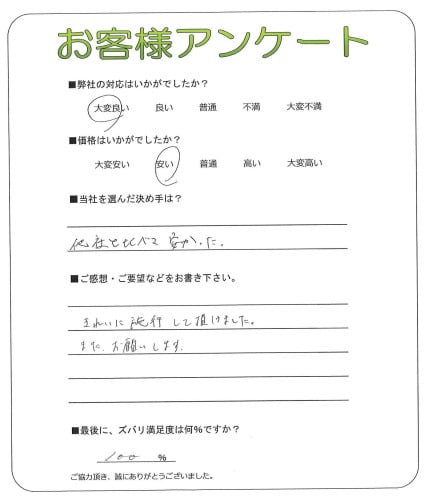 お客様アンケート
■弊社の対応はいかがでしたか？
大変良い 良い 普通 不満 大変不満
■価格はいかがでしたか？
大変安い 安い 普通 高い 大変高い
■当社を選んだ決め手は？
他社と比べて安かった。
■ご感想・ご要望などをお書き下さい。
きれいに施行して頂けました。
また、お願いします。
■最後に、ズバリ満足度は何％ですか？
100 ％
ご協力頂き、誠にありがとうございました。